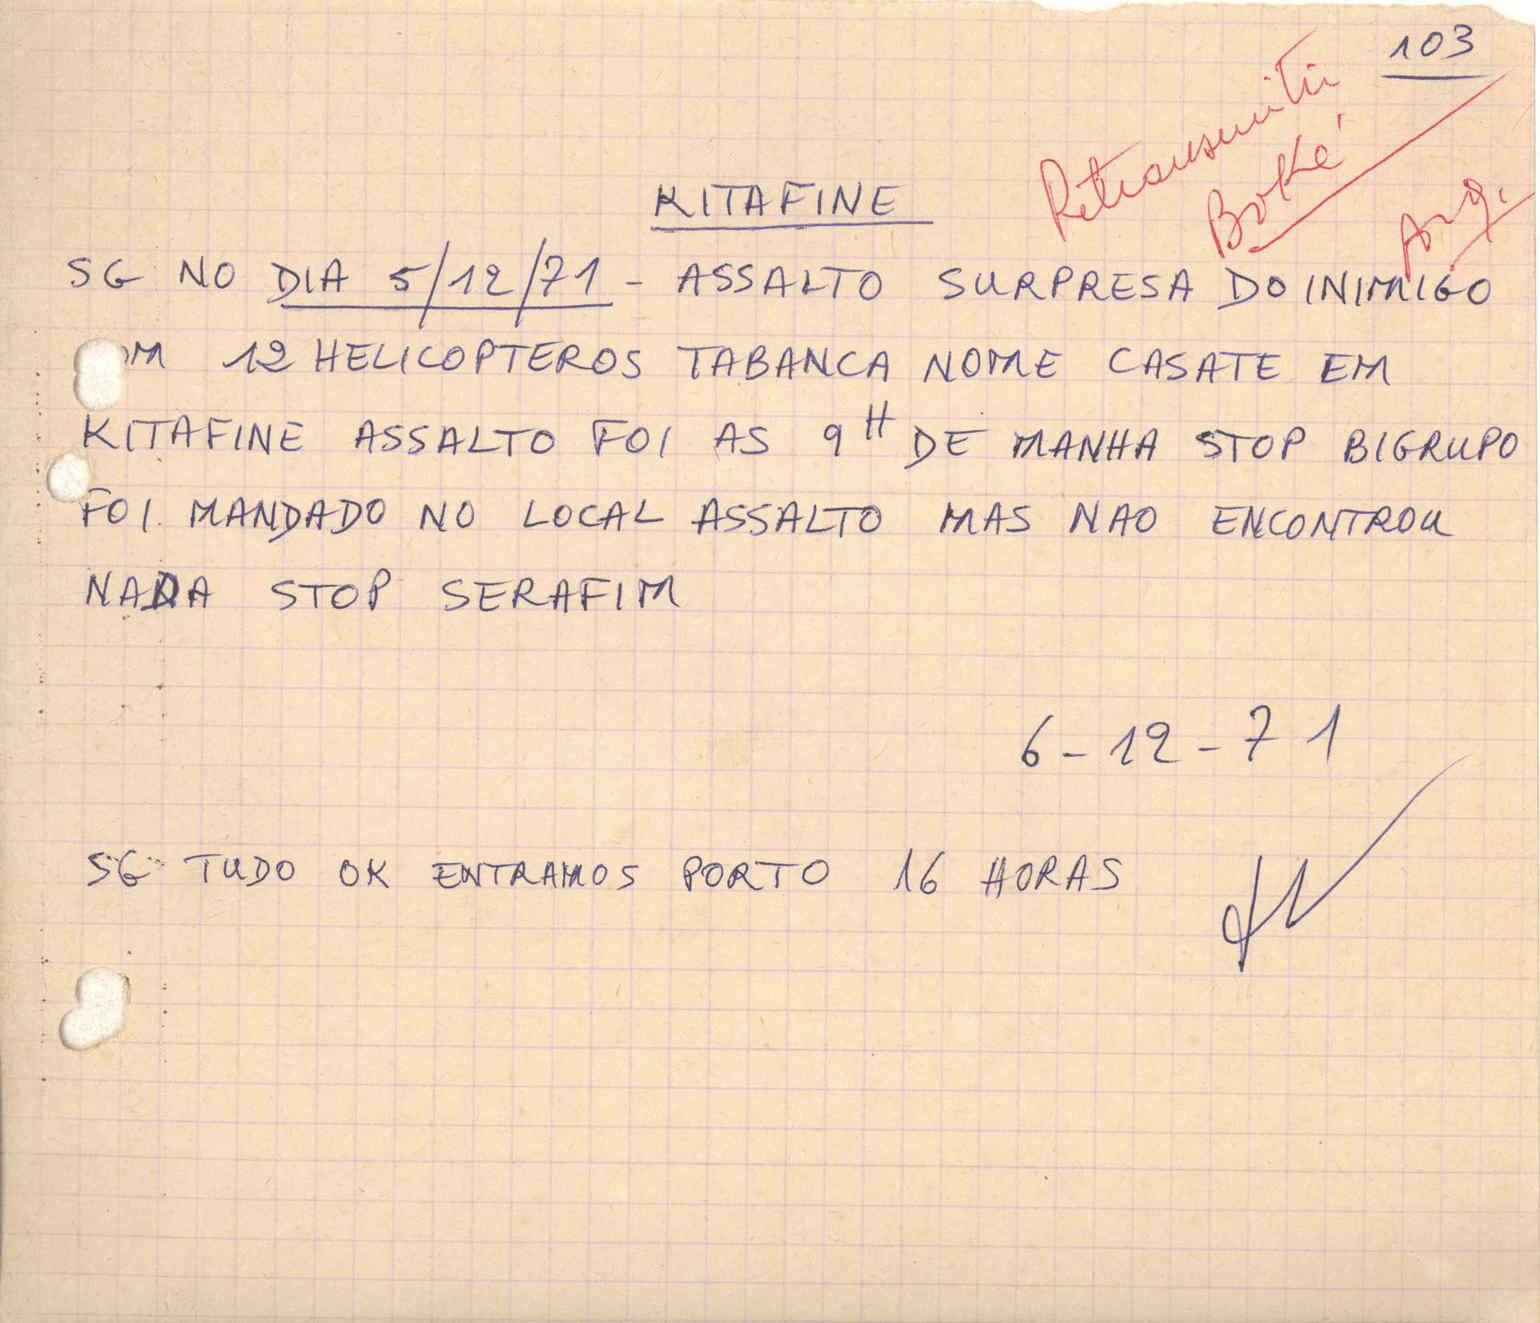 103
Retransmitir
Boké
Arq.
KITAFINE
SG NO DIA 5/12/71 - ASSALTO SURPRESA DO INIMIGO
OM 12 HELICOPTEROS TABANCA NOME CASATE EM
KITAFINE ASSALTO FOI AS 9H DE MANHA STOP BIGRUPO
FOI MANDADO NO LOCAL ASSALTO MAS NAO ENCONTROU
NADA STOP SERAFIM
6-12-71
SG TUDO OK ENTRAMOS PORTO 16 HORAS